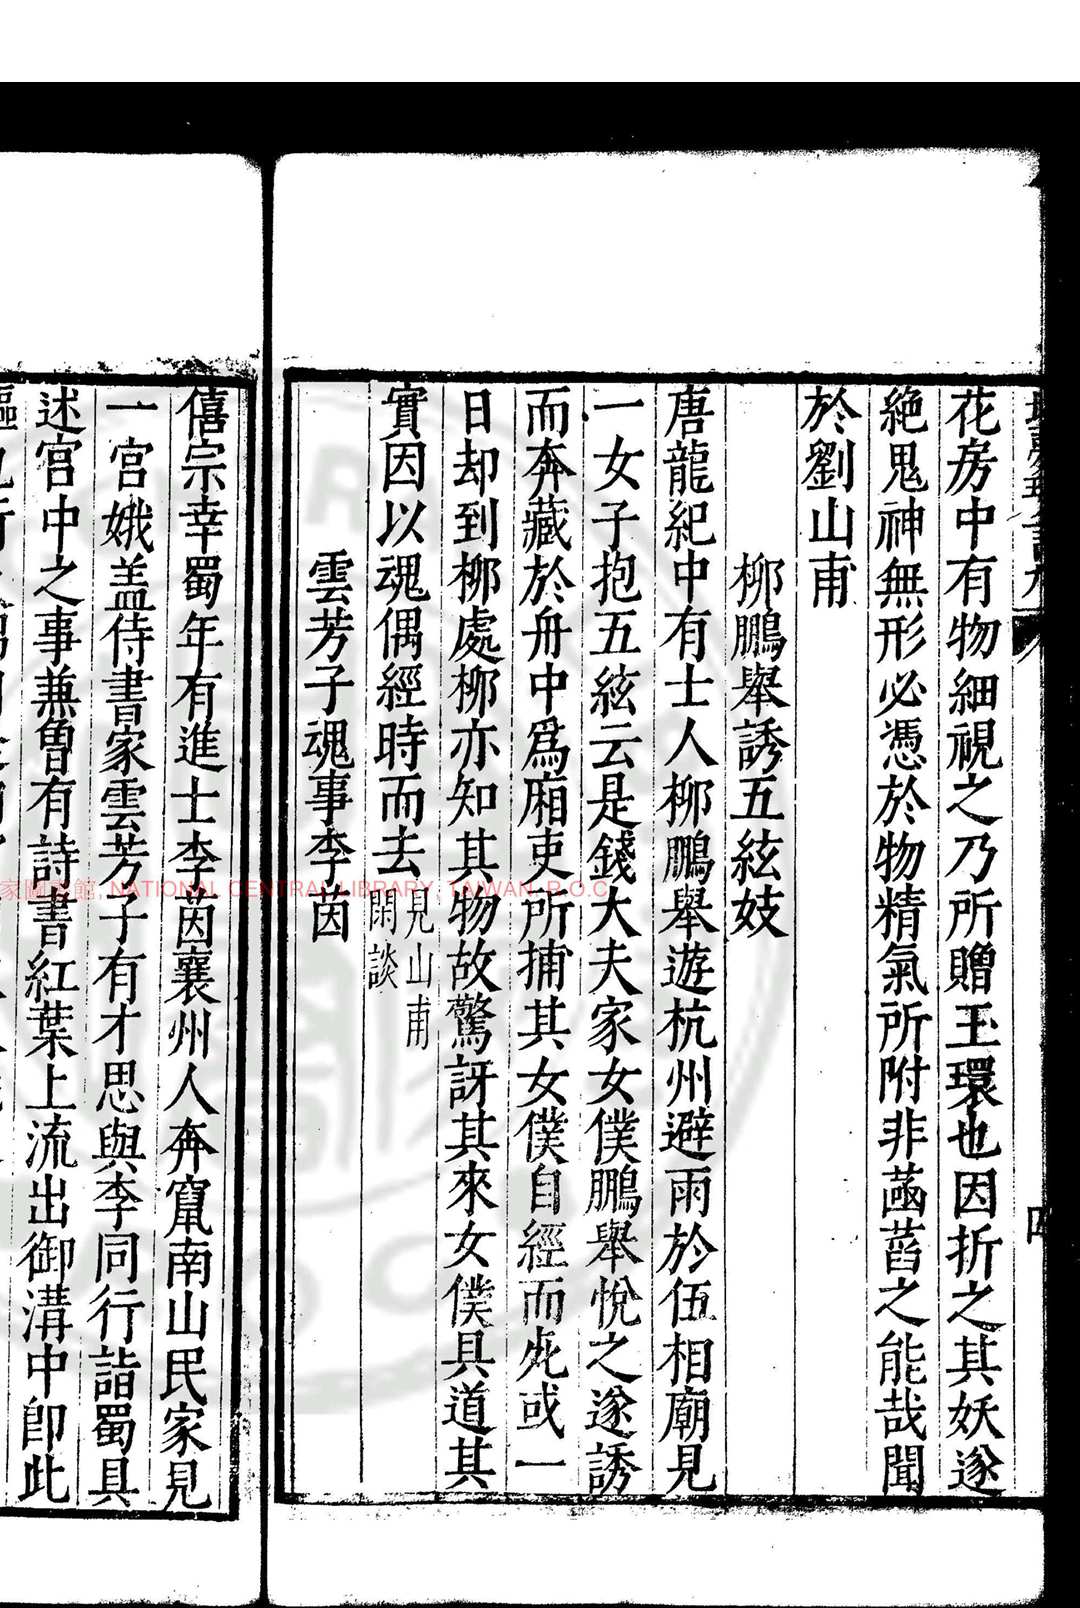 花房中有物細視之乃所贈玉環也因折之其妖遂
絕鬼神無形必憑於物精氣所附非菡萏之能哉聞
於劉山甫
柳鵬舉誘五絃妓
唐龍紀中有士人柳鵬舉遊杭州避雨於伍相廟見
一女子抱五絃云是錢大夫家女僕鵬舉悅之遂誘
而奔藏於舟中爲廂吏所捕其女僕自經而死或一
日却到柳處柳亦知其物故驚訝其來女僕具道其
實因以魂偶經時而去見山甫
閑談
雲芳子魂事李茵
僖宗幸蜀年有進士李茵襄州人奔竄南山民家見
一宮娥盖侍書家雲芳子有才思與李同行詣蜀具
述宮中之事兼曾有詩書紅葉上流出御溝中卽此
家圖書館, NATIONAL CENTRAL LIBRARY, TAIWAN, R.O.C